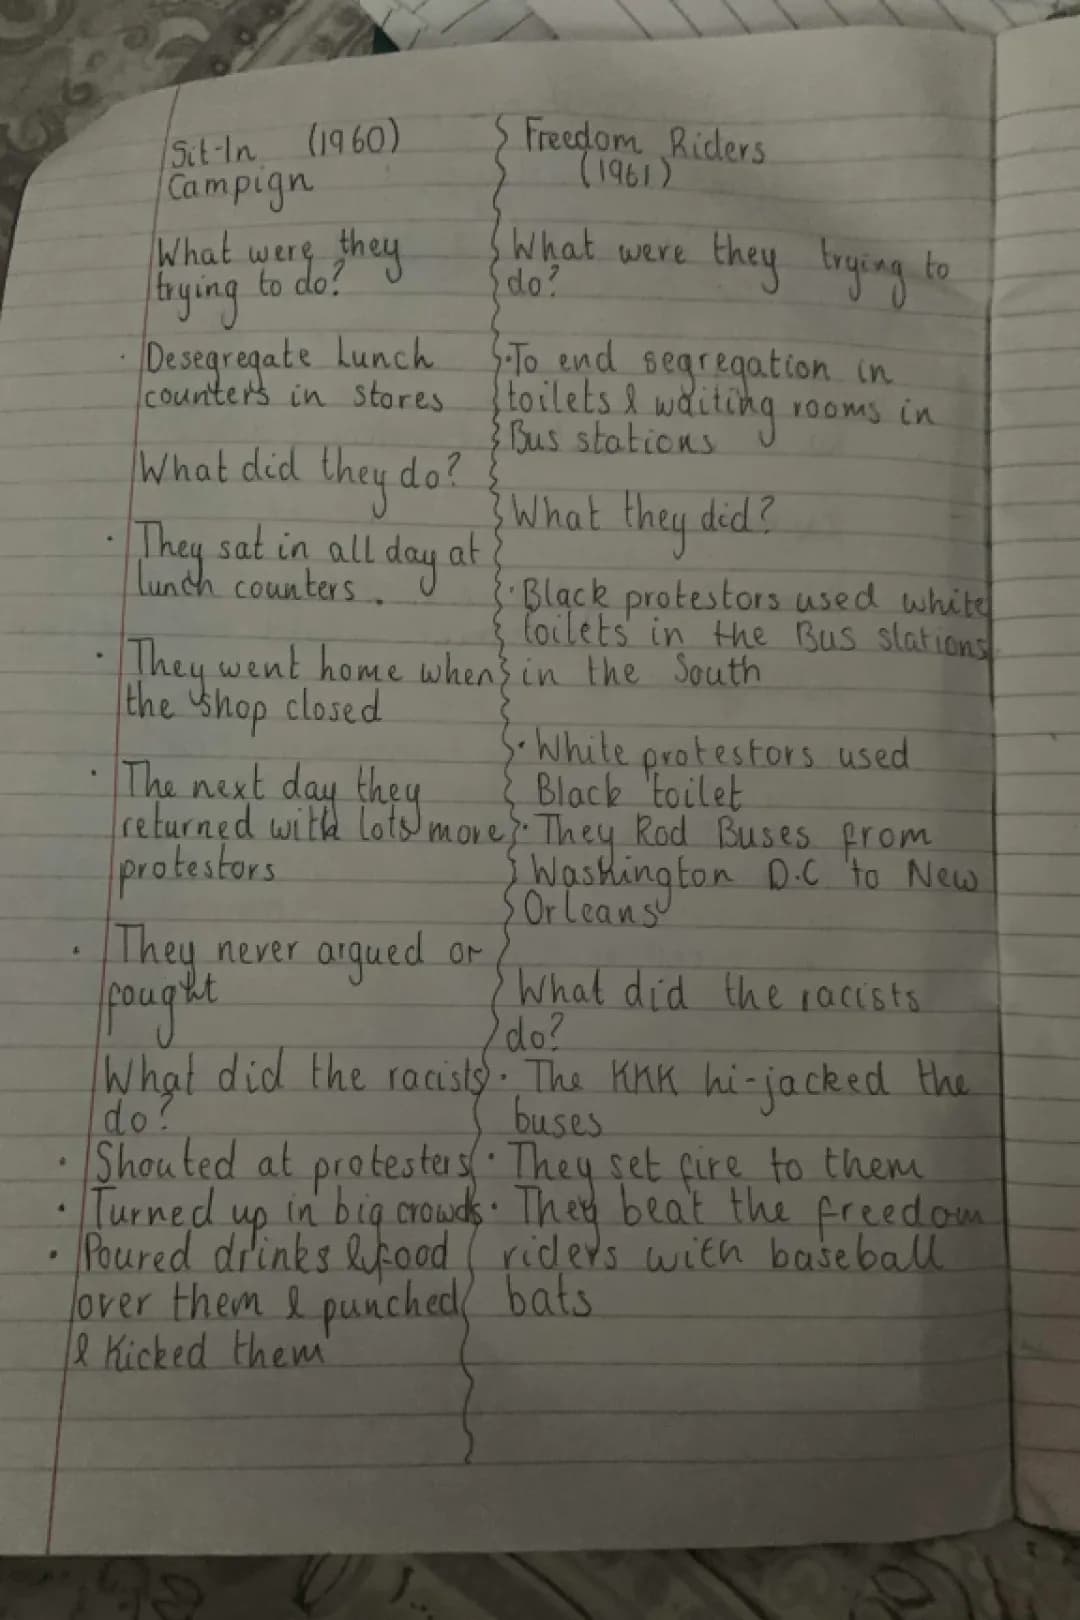 Sit-In (1960)
Campign
What were they
trying to do?
· Desegregate Lunch
counters in stores
What did they do?
· They sat in all day at
lunch counters.
· They went home when
the shop closed
· The next day they
returned with lots more
protestors
· They never argued or
fought
What did the racists
do?
· Shouted at protesters
· Turned up in big crowds
· Poured drinks & food
over them & punched
& Kicked them
Freedom Riders
(1961)
What were they trying to
do?
· To end segregation in
toilets & waiting rooms in
Bus stations
What they did?
· Black protestors used white
toilets in the Bus stations
in the South
· White protestors used
Black toilet
· They Rod Buses from
Washington D.C to New
Orleans
What did the racists
do?
· The KKK hi-jacked the
buses
· They set fire to them
· They beat the freedom
riders with baseball
bats